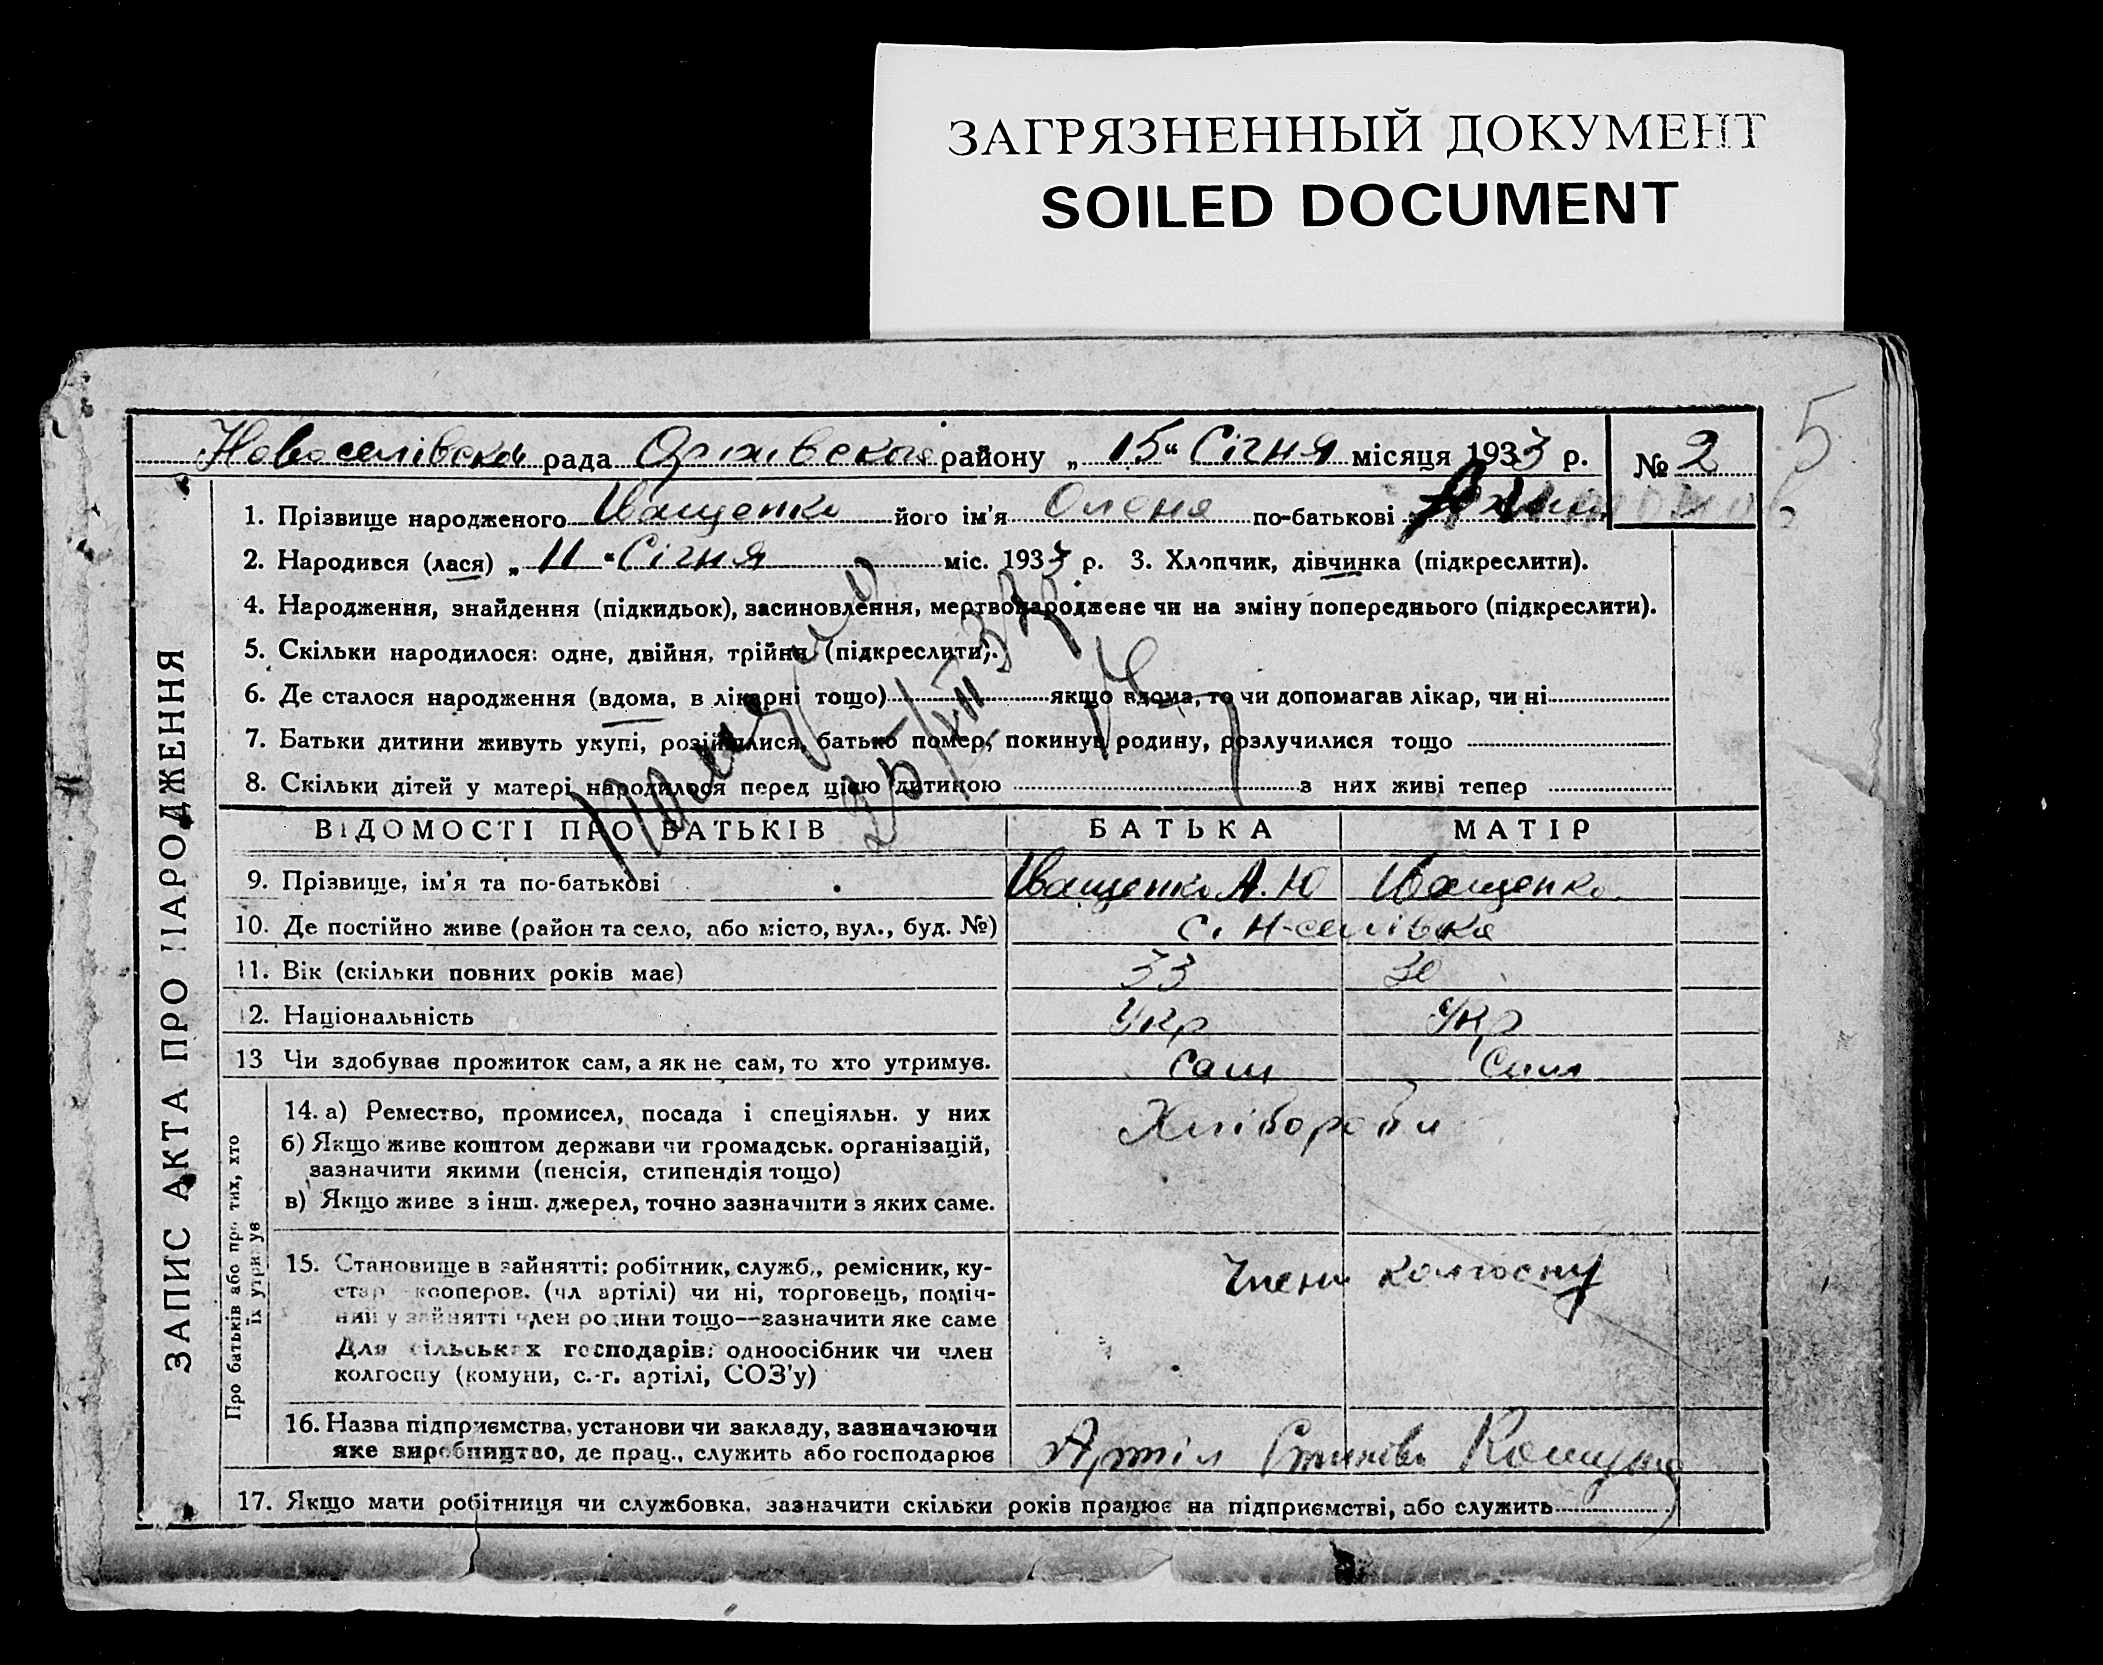 ЗАГРЯЗНЕННЫЙ ДОКУМЕНТ
SOILED DOCUMENT
5
Новоселівська рада району „ 15 “ Січня місяця 1933 р. № 2
1. Прізвище народженого Іващенко його ім'я Олена по-батькові
2. Народився (лася) „ 11 “ Січня міс. 1933 р. 3. Хлопчик, дівчинка (підкреслити).
4. Народження, знайдення (підкидьок), засиновлення, мертвонароджене чи на зміну попереднього (підкреслити).
5. Скільки народилося: одне, двійня, трійня (підкреслити).
6. Де сталося народження (вдома, в лікарні тощо) якщо вдома, то чи допомагав лікар, чи ні
7. Батьки дитини живуть укупі, розійшлися, батько помер, покинув родину, розлучилися тощо
8. Скільки дітей у матері народилося перед цією дитиною з них живі тепер
ВІДОМОСТІ ПРО БАТЬКІВ БАТЬКА МАТІР
9. Прізвище, ім'я та по-батькові Іващенко А. Ю Іващенко
10. Де постійно живе (район та село, або місто, вул., буд. №) С. Н-селівка
11. Вік (скільки повних років має) 33 30
12. Національність Укр Укр
13 Чи здобуває прожиток сам, а як не сам, то хто утримує. Сам Сам
14. а) Ремество, промисел, посада і спеціяльн. у них Хлібороби
б) Якщо живе коштом держави чи громадськ. організацій,
зазначити якими (пенсія, стипендія тощо)
в) Якщо живе з інш. джерел, точно зазначити з яких саме.
15. Становище в зайнятті: робітник, служб., ремісник, ку-
стар кооперов. (чл артілі) чи ні, торговець, поміч-
ний у зайнятті член родини тощо—зазначити яке саме
Для сільських господарів: одноосібник чи член
колгоспу (комуни, с.-г. артілі, СОЗ'у)
Члени колгоспу
16. Назва підприємства, установи чи закладу, зазначаючи
яке виробництво, де прац., служить або господарює Артіл
17. Якщо мати робітниця чи службовка, зазначити скільки років працює на підприємстві, або служить
ЗАПИС АКТА ПРО НАРОДЖЕННЯ
Про батьків або про тих, хто
їх утримує